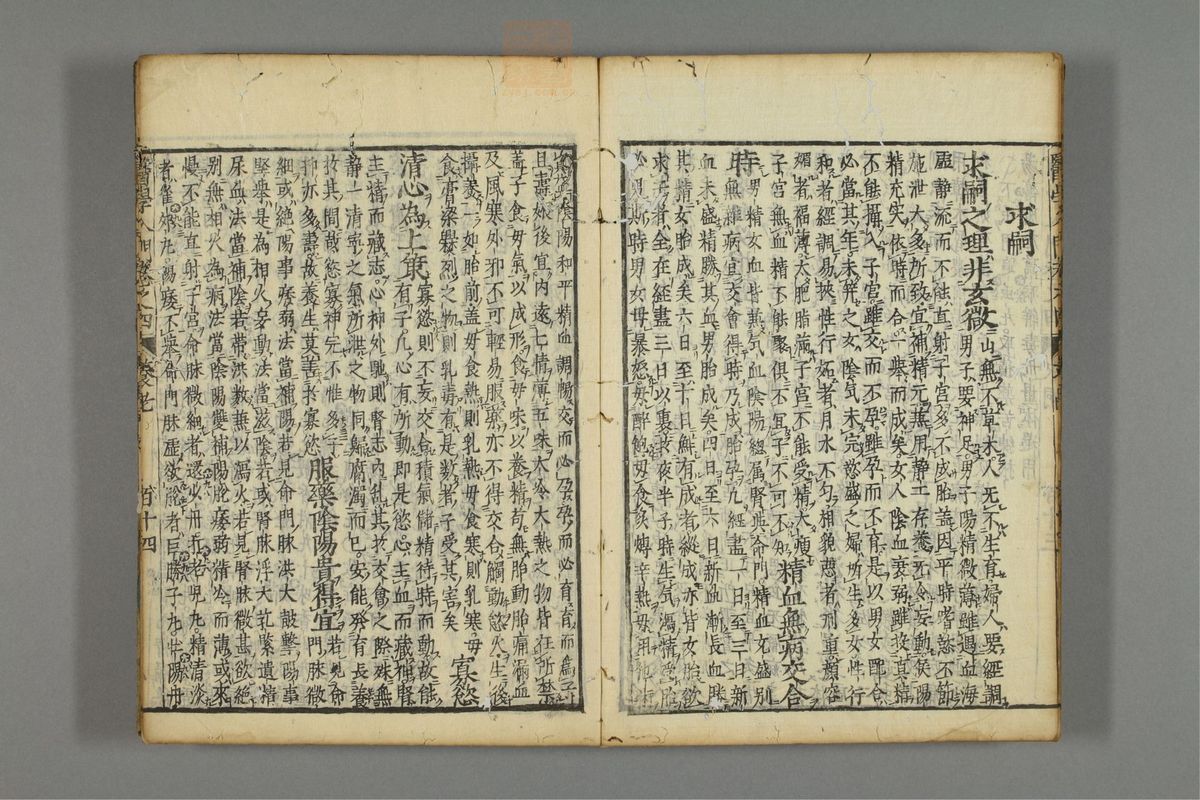 求嗣
求嗣之理非玄微山無不草木人無不生育婦人要經調
男子要神足男子陽精微薄雖遇血海
虛靜流而不能直射子宮多不成胎蓋因平時嗜慾不節
施泄大多所致宜補精元兼用靜工存養無令妄動候陽
精充失依時而合一舉而成矣女人陰血衰弱雖投真精
不能攝入子宮雖交而不孕雖孕而不育是以男女配合
必當其年未笄之女陰氣未完慾盛之婦所生多女性行
和者經調易挾性行妬者月水不勻相貌惡者刑重顏容
媚者福薄太肥脂滿子宮不能受精大瘦
子宮無血精不能聚俱不宜子不可不知精血無病交合
時男精女血皆兼氣血陰陽總屬腎與命門精血充盛別
無雜病宜交會得時乃成胎孕凡經盡一日至三日新
血未盛精勝其血男胎成矣四日至六日新血漸長血勝
其精女胎成矣六日至十日鮮有成者縱成亦皆女胎欲
求子者全在經盡三日以裏夜半子時生氣瀉精受胎
必男斯時男女毋暴怒毋醉飽毋食炙煿辛熱毋用
陰陽和平精血調暢交而必孕孕而必育育而為子
且壽娠後宜內遠七情薄五味大冷大熱之物皆在所禁
蓋子食母氣以成形食母味以養精苟無胎動胎痛漏血
及風寒外邪不可輕易服藥亦不得交合觸動慾火生後
搆養一如胎前蓋母食熱則乳熱母食寒則乳寒母
食膏粱釀烈之物則乳毒有是數者子受其害矣寡慾
清心為上策寡慾則不妄交合積氣儲精待時而動故能
有子凡心有所動即是慾心主血而藏神腎
主精而藏志心神外馳則腎志內亂其於交會之際殊無
靜一清寧之氣所泄之物同歸腐濁而已安能發有長養
於其間哉慾寡神完不惟多子
抑亦多壽故養生莫善于寡慾服藥陰陽貴得宜若見命門脉微
細或絕陽事痿弱法當補陽若見命門脉洪大鼓擊陽事
堅舉是為相火妄動法當滋陰若或腎脉浮大扎緊遺精
尿血法當補陰若帶洪數兼以瀉火若見腎脉微甚欲絕
別無相火為病法當陰陽雙補陽脫痿弱精冷而薄或來
慢不能直射子宮命脉微細者還火丹
精清淡
者雀卵丸陽痿不舉命門脉虛欲脫者巨勝子丸壯陽丹
百十四